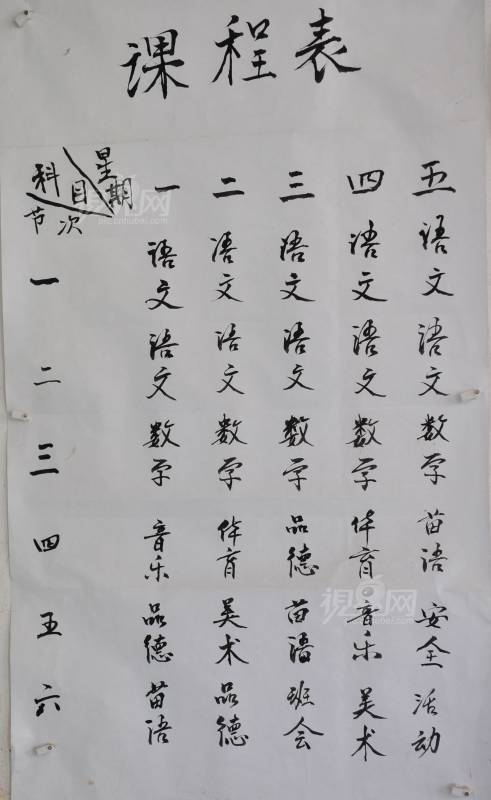 课程表
科目 星期 节次 一 二 三 四 五
一 语文 语文 语文 语文 语文
二 语文 语文 语文 语文 语文
三 数学 数学 数学 数学 数学
四 音乐 体育 品德 体育 苗语
五 品德 美术 苗语 音乐 安全
六 苗语 品德 班会 美术 活动